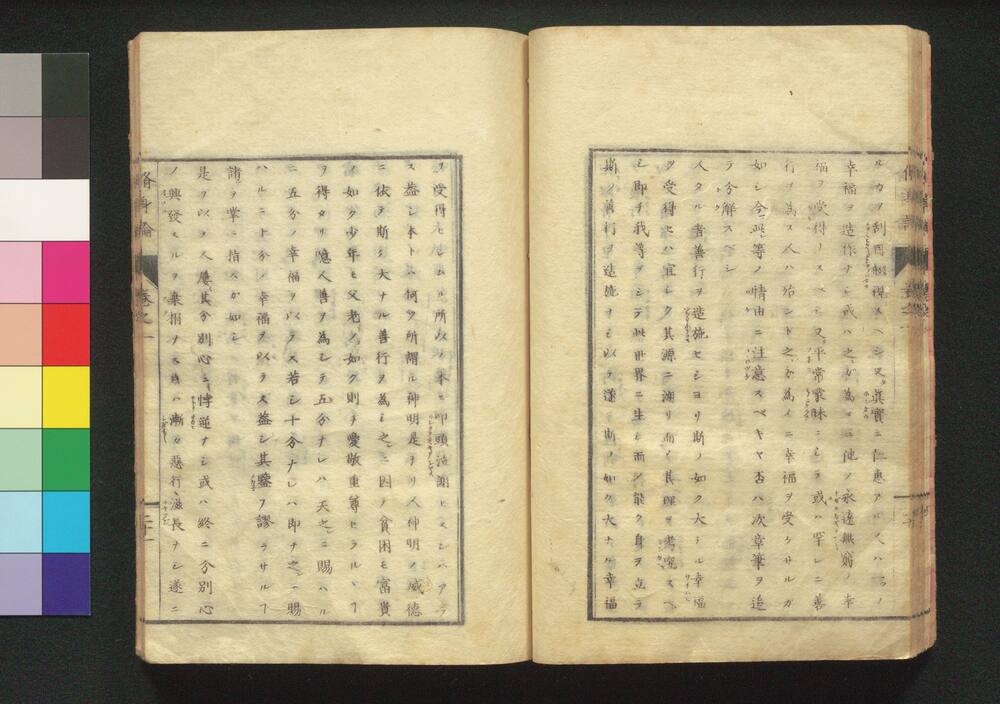 幸福ヲ造作ナシ或ハ之ガ為ニ他ノ永遠無窮ノ幸
福ヲ受得ースベシ又平常蒙昧ニシテ或ハ罕レニ善
行ヲ為ス人ハ殆ント之ガ為メニ幸福ヲ受クサルガ
如シ今此等ノ情由ニ注意スベキヤ否ハ次章筆ヲ追
テ分解スベシ
人タル者善行ヲ造施セシヨリ斯ノ如ク大ナル幸福
ヲ受得セハ宜シク其源ニ溯リ而メ其理ヲ考究スベ
シ即チ我等ヲシテ此世界ニ生シ而シ能ク身ヲ立テ
斯ノ善行ヲ造施ヲモ以テ遂ニ斯ノ如ク大ナル幸福
ヲ受得セシムル所以ノ本ヲ叩頭
ス蓋シ本トハ何ヲ所謂ル神明是ナリ人神明ノ威徳
ニ依テ斯ク大ナル善行ヲ為シ之ニ因テ貧困モ富貴
ノ如ク少年モ父老ノ如ク則チ愛敬重尊セラルヽヿ
ヲ得タリ噫人善ヲ為シテ五分ナレハ天之ニ賜ハル
ニ五分ノ幸福ヲ以テス若シ十分ナレハ即チ之ニ賜
ハルニ十分ノ幸福ヲ以テス蓋シ其鑒ヲ謬ラサルヿ
諸ヲ掌ニ指スガ如シ
是ヲ以テ人屢其分別心ニ悖逆ナシ或ハ終ニ分別心
ノ興發スルヲ棄捐ナス時ハ漸々惡行ヽ滋長ナシ遂ニ
脩身論
卷之一